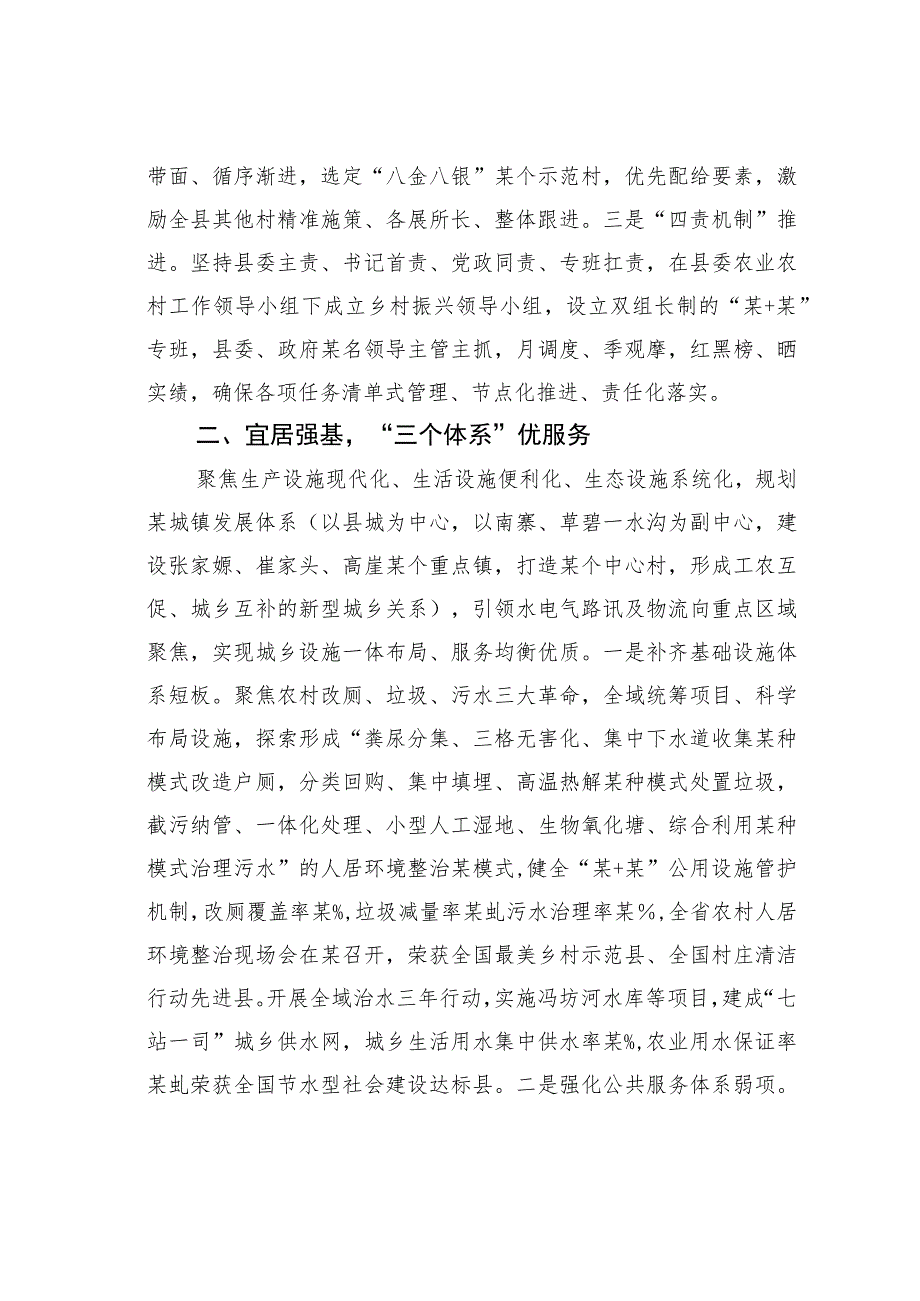 带面、循序渐进，选定“八金八银”某个示范村，优先配给要素，激
励全县其他村精准施策、各展所长、整体跟进。三是“四责机制”推
进。坚持县委主责、书记首责、党政同责、专班扛责，在县委农业农
村工作领导小组下成立乡村振兴领导小组，设立双组长制的“某+某”
专班，县委、政府某名领导主管主抓，月调度、季观摩，红黑榜、晒
实绩，确保各项任务清单式管理、节点化推进、责任化落实。
二、宜居强基，“三个体系”优服务
聚焦生产设施现代化、生活设施便利化、生态设施系统化，规划
某城镇发展体系（以县城为中心，以南寨、草碧一水沟为副中心，建
设张家嫄、崔家头、高崖某个重点镇，打造某个中心村，形成工农互
促、城乡互补的新型城乡关系），引领水电气路讯及物流向重点区域
聚焦，实现城乡设施一体布局、服务均衡优质。一是补齐基础设施体
系短板。聚焦农村改厕、垃圾、污水三大革命，全域统筹项目、科学
布局设施，探索形成“粪尿分集、三格无害化、集中下水道收集某种
模式改造户厕，分类回购、集中填埋、高温热解某种模式处置垃圾，
截污纳管、一体化处理、小型人工湿地、生物氧化塘、综合利用某种
模式治理污水”的人居环境整治某模式,健全“某+某”公用设施管护
机制,改厕覆盖率某%,垃圾减量率某虬污水治理率某％,全省农村人居
环境整治现场会在某召开，荣获全国最美乡村示范县、全国村庄清洁
行动先进县。开展全域治水三年行动,实施冯坊河水库等项目,建成“七
站一司”城乡供水网，城乡生活用水集中供水率某%,农业用水保证率
某虬荣获全国节水型社会建设达标县。二是强化公共服务体系弱项。